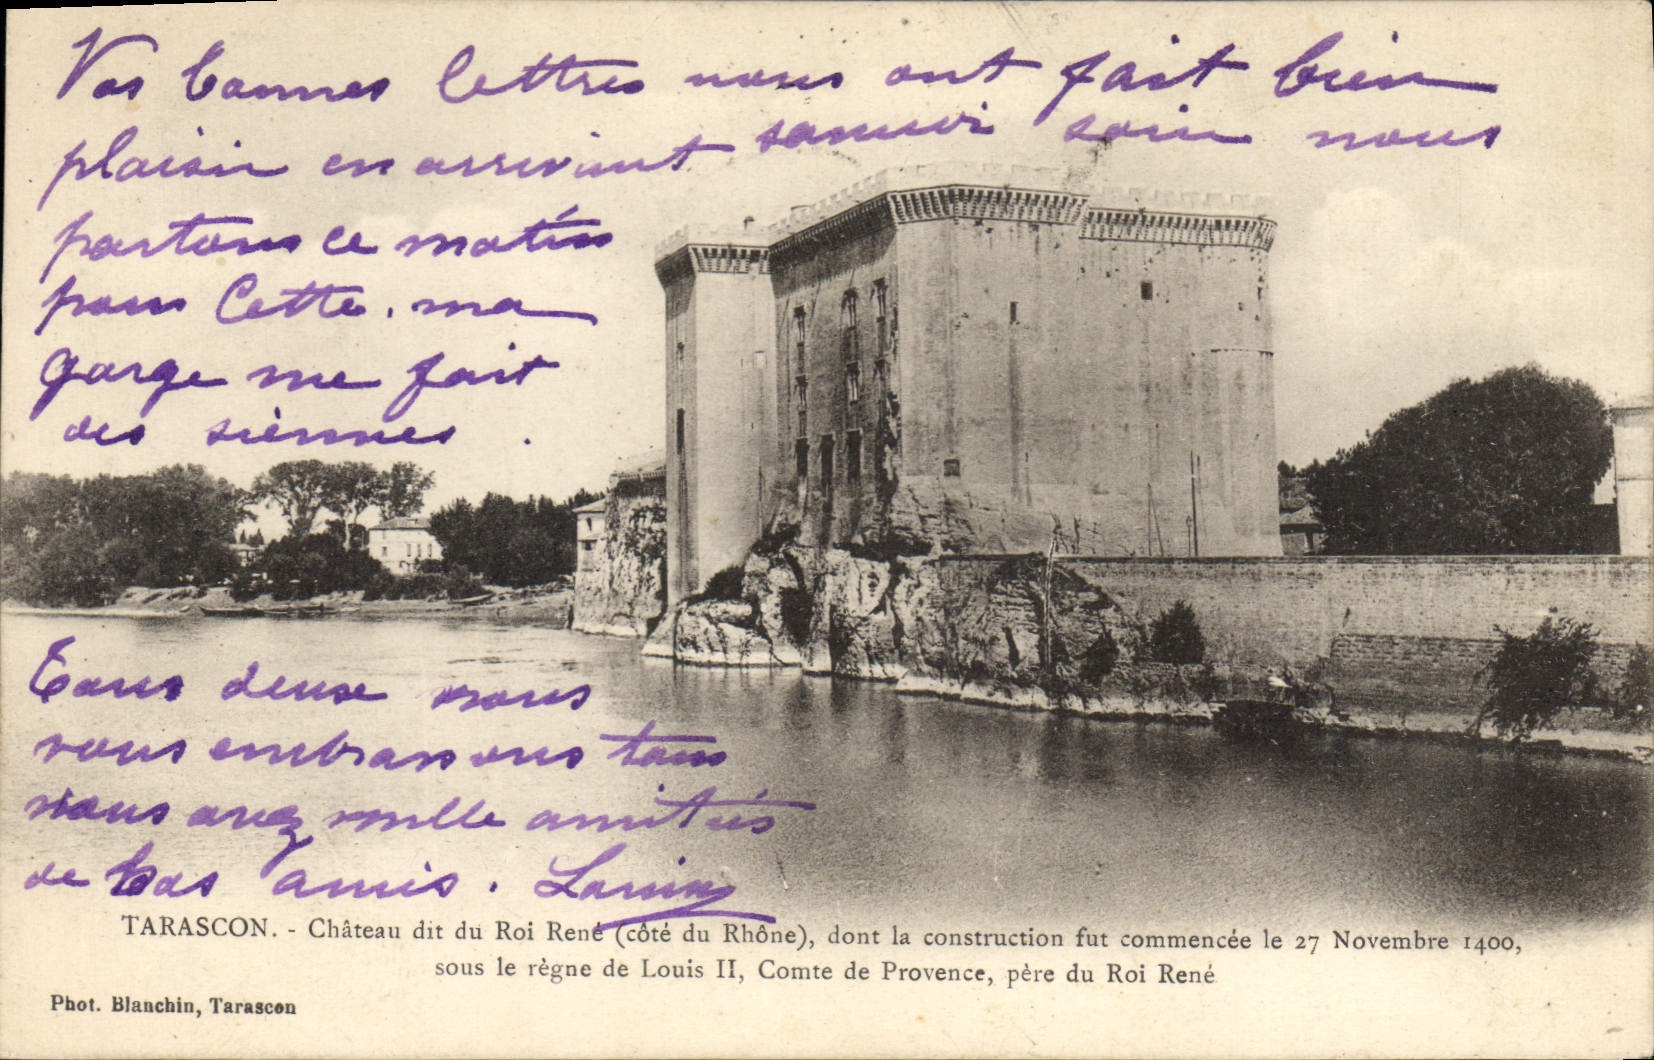 Vos bonnes lettres nous ont fait bien
plaisir en arrivant samedi soir nous
partons ce matin
pour Cette. ma
gorge me fait
des siènnes.
Tous deux nous
vous embrassons tous
vous avez mille amitiés
de vos amis.
TARASCON. - Château dit du Roi René (côté du Rhône), dont la construction fut commencée le 27 Novembre 1400,
sous le règne de Louis II, Comte de Provence, père du Roi René
Phot. Blanchin, Tarascon